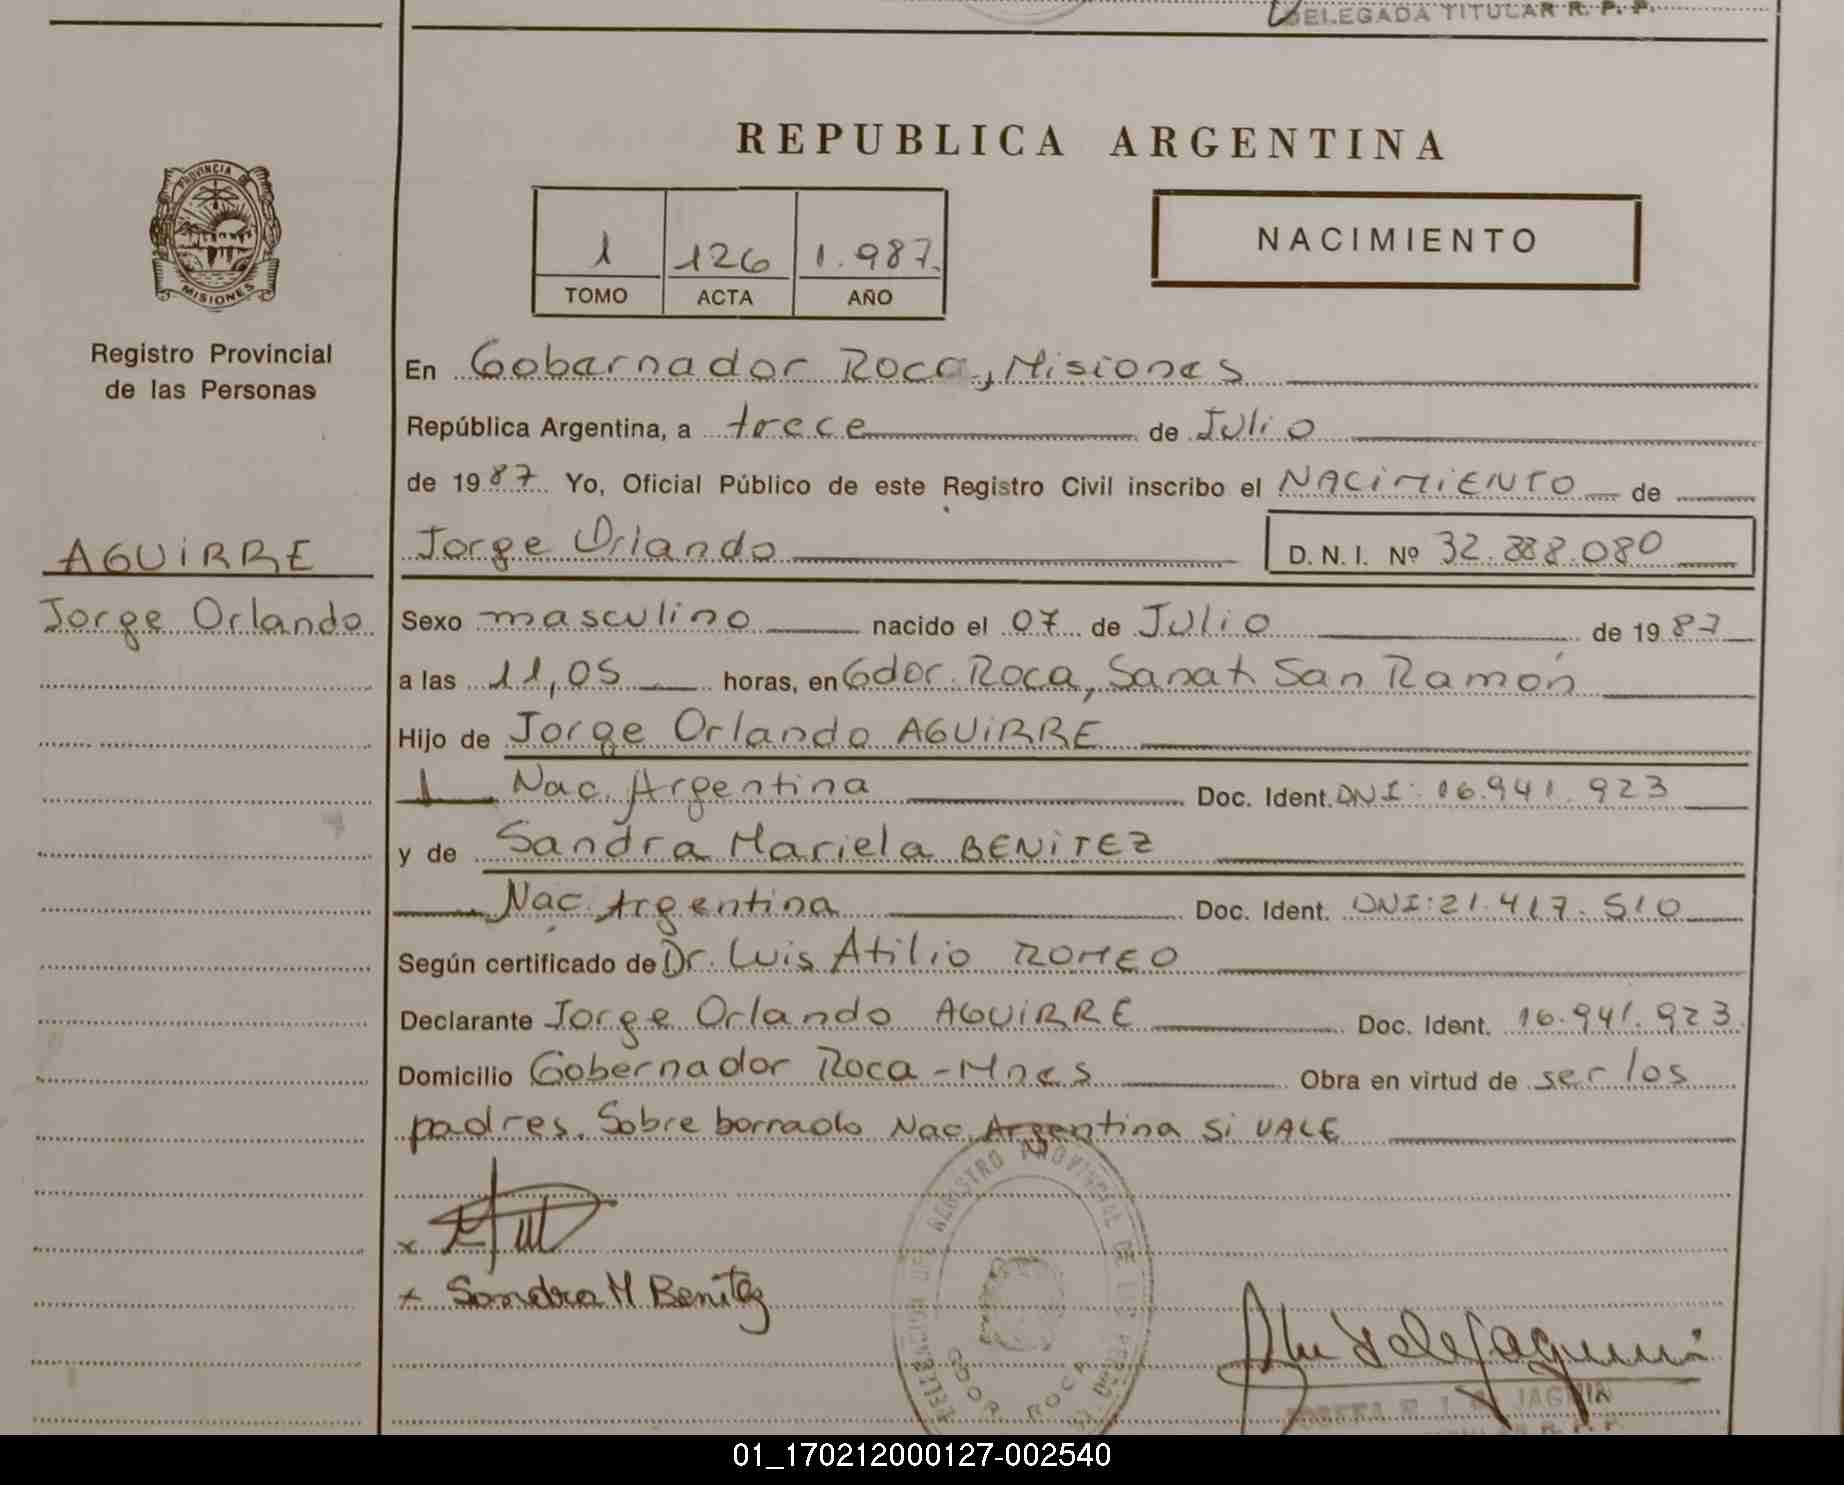 DELEGADA TITULAR R. P. P.
REPUBLICA ARGENTINA
PROVINCIA DE
MISIONES
Registro Provincial
de las Personas
1 126 1.987.
TOMO ACTA AÑO
NACIMIENTO
En Gobernador Roca, Misiones
República Argentina, a trece de Julio
de 1987 Yo, Oficial Público de este Registro Civil inscribo el NACIMIENTO de
AGUIRRE
Jorge Orlando
Jorge Orlando D. N. I. Nº 32.888.080
Sexo masculino nacido el 07 de Julio de 1987
a las 11,05 horas, en Gdor. Roca, Sanat. San Ramón
Hijo de Jorge Orlando AGUIRRE
Nac. Argentina Doc. Ident. DNI: 16.941.923
y de Sandra Mariela BENITEZ
Nac. Argentina Doc. Ident. DNI: 21.417.510
Según certificado de Dr. Luis Atilio ROMEO
Declarante Jorge Orlando AGUIRRE Doc. Ident. 16.941.923
Domicilio Gobernador Roca - Mnes Obra en virtud de ser los
padres. Sobre borrado Nac. Argentina SI VALE
x
x Sandra M Benitez
REGISTRO PROVINCIAL DE LAS
GDOR. ROCA
01_170212000127-002540